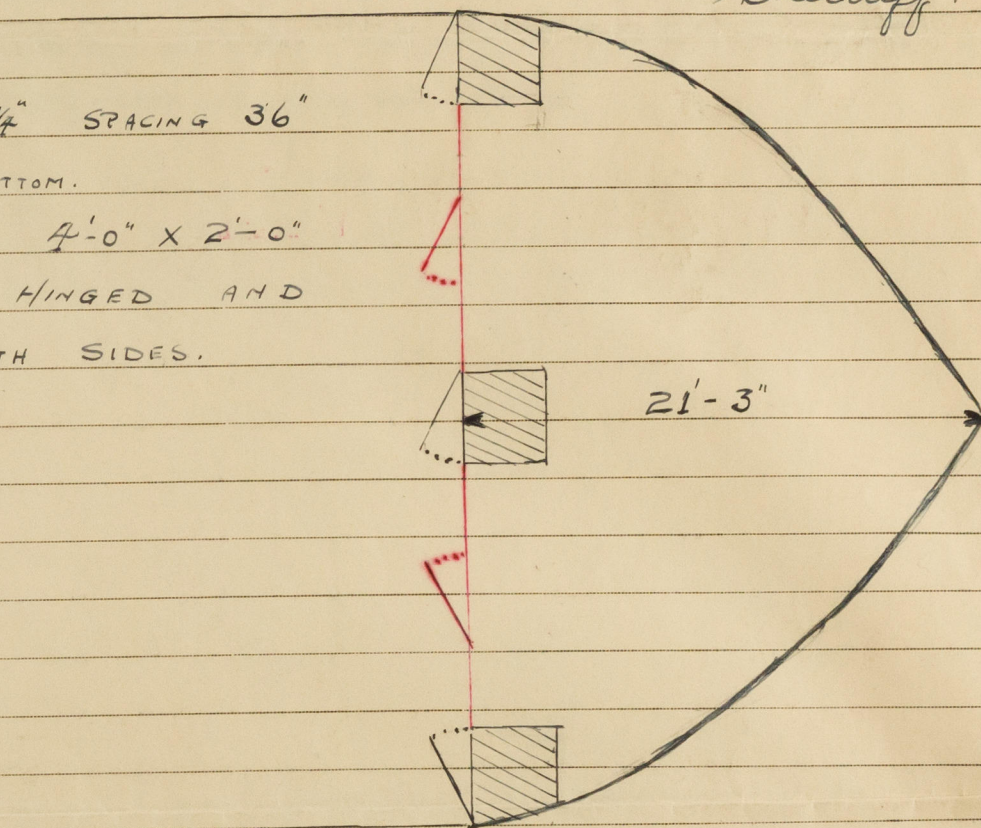 4" SPACING 36"
TTOM.
4'-0" X 2'-0"
HINGED AND
TH SIDES.
21'-3"